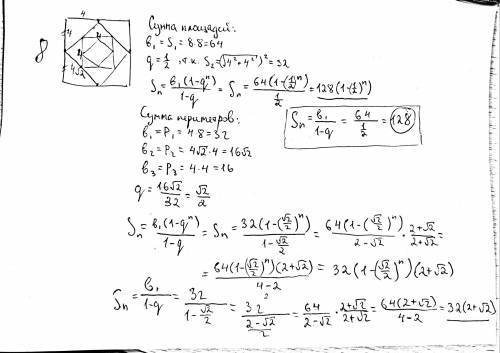 8
4
4
4
4√2
Сумма площадей:
b₁ = S₁ = 8·8 = 64
q = 1/2, т.к. S₂ = (√(4²+4²))² = 32
Sₙ = b₁(1-qⁿ)/(1-q) = Sₙ = 64(1-(1/2)ⁿ)/(1/2) = 128(1-(1/2)ⁿ)
Sₙ = b₁/(1-q) = 64/(1/2) = 128
Сумма периметров:
b₁ = P₁ = 4·8 = 32
b₂ = P₂ = 4√2·4 = 16√2
b₃ = P₃ = 4·4 = 16
q = 16√2/32 = √2/2
Sₙ = b₁(1-qⁿ)/(1-q) = Sₙ = 32(1-(√2/2)ⁿ)/(1-√2/2) = 64(1-(√2/2)ⁿ)/(2-√2) · (2+√2)/(2+√2) =
= 64(1-(√2/2)ⁿ)(2+√2)/(4-2) = 32(1-(√2/2)ⁿ)(2+√2)
Sₙ = b₁/(1-q) = 32/(1-√2/2) = 32/((2-√2)/2) = 64/(2-√2) · (2+√2)/(2+√2) = 64(2+√2)/(4-2) = 32(2+√2)